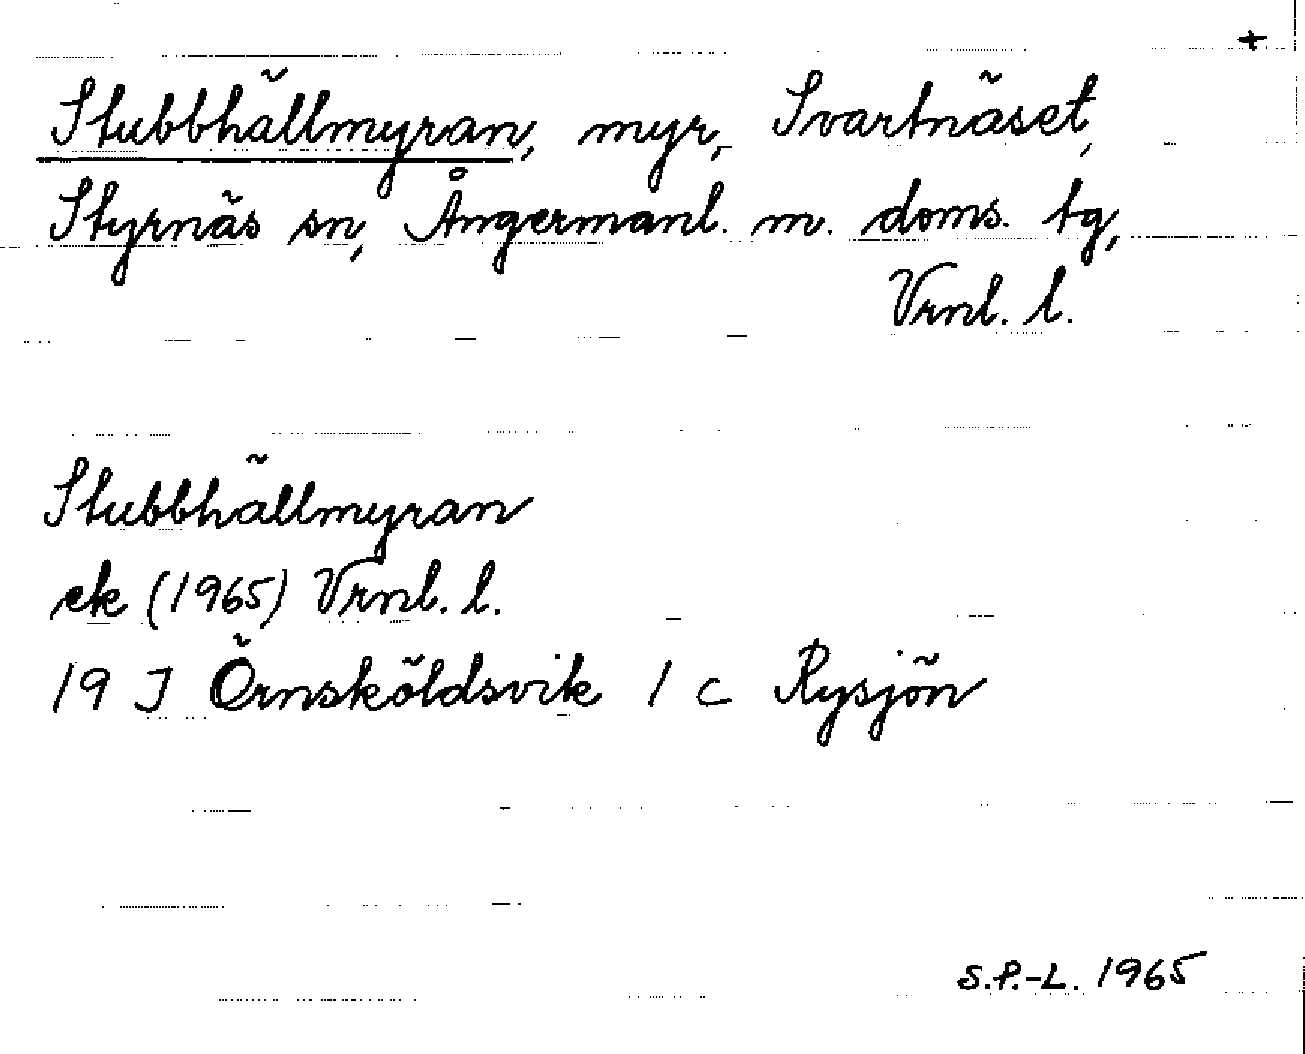 +
Stubbhällmyran, myr, Svartnäset,
Styrnäs sn, Ångermanl. m. doms. tg,
Vrnl. l.
Stubbhällmyran
ek (1965) Vrnl. l.
19 J Örnsköldsvik 1 c Rysjön
S.P.-L. 1965